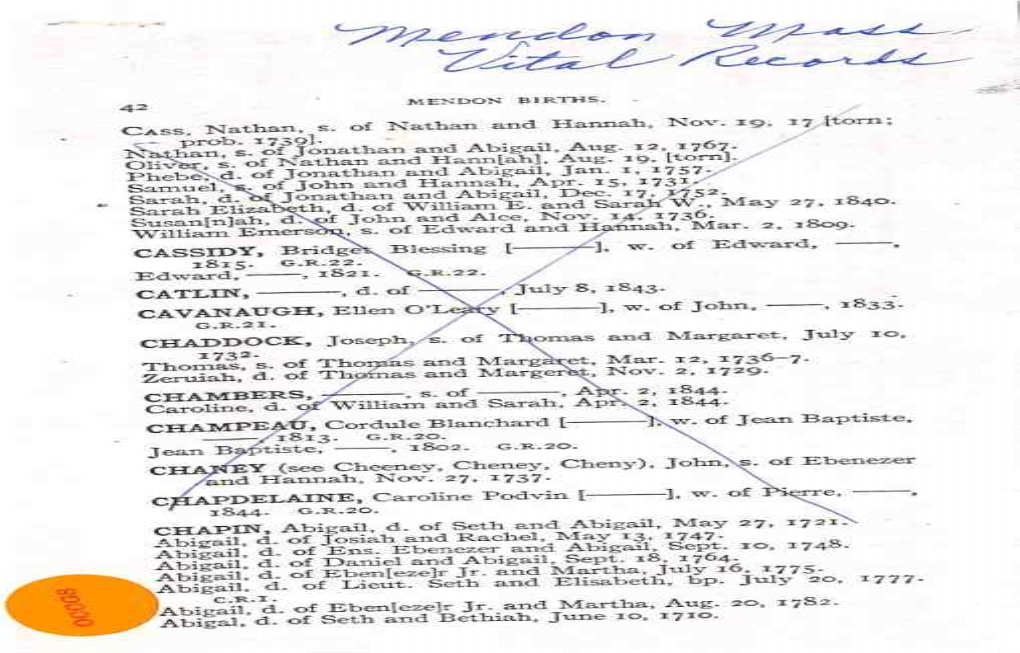 Mendon Mass.
Vital Records
42 MENDON BIRTHS.
CASS, Nathan, s. of Nathan and Hannah, Nov. 19, 17 [torn;
prob. 1739].
Nathan, s. of Jonathan and Abigail, Aug. 12, 1767.
Oliver, s. of Nathan and Hann[ah], Aug. 19, [torn].
Phebe, d. of Jonathan and Abigail, Jan. 1, 1757.
Samuel, s. of John and Hannah, Apr. 15, 1731.
Sarah, d. of Jonathan and Abigail, Dec. 17, 1752.
Sarah Elizabeth, d. of William E. and Sarah W., May 27, 1840.
Susan[n]ah, d. of John and Alce, Nov. 14, 1736.
William Emerson, s. of Edward and Hannah, Mar. 2, 1809.
CASSIDY, Bridget Blessing [———], w. of Edward, ——,
1815. G.R.22.
Edward, ——, 1821. G.R.22.
CATLIN, ———, d. of ———, July 8, 1843.
CAVANAUGH, Ellen O'Leary [———], w. of John, ——, 1833.
G.R.21.
CHADDOCK, Joseph, s. of Thomas and Margaret, July 10,
1732.
Thomas, s. of Thomas and Margaret, Mar. 12, 1736-7.
Zeruiah, d. of Thomas and Margeret, Nov. 2, 1729.
CHAMBERS, ———, s. of ———, Apr. 2, 1844.
Caroline, d. of William and Sarah, Apr. 2, 1844.
CHAMPEAU, Cordule Blanchard [———], w. of Jean Baptiste,
——, 1813. G.R.20.
Jean Baptiste, ——, 1802. G.R.20.
CHANEY (see Cheeney, Cheney, Cheny), John, s. of Ebenezer
and Hannah, Nov. 27, 1737.
CHAPDELAINE, Caroline Podvin [———], w. of Pierre, ——,
1844. G.R.20.
CHAPIN, Abigail, d. of Seth and Abigail, May 27, 1721.
Abigail, d. of Josiah and Rachel, May 13, 1747.
Abigail, d. of Ens. Ebenezer and Abigail, Sept. 10, 1748.
Abigail, d. of Daniel and Abigail, Sept. 18, 1764.
Abigail, d. of Eben[eze]r Jr. and Martha, July 16, 1775.
Abigail, d. of Lieut. Seth and Elisabeth, bp. July 20, 1777.
C.R.1.
Abigail, d. of Eben[eze]r Jr. and Martha, Aug. 20, 1782.
Abigal, d. of Seth and Bethiah, June 10, 1710.